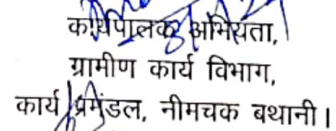 कार्यपालक अभियंता,
ग्रामीण कार्य विभाग,
कार्य प्रमंडल, नीमचक बथानी।